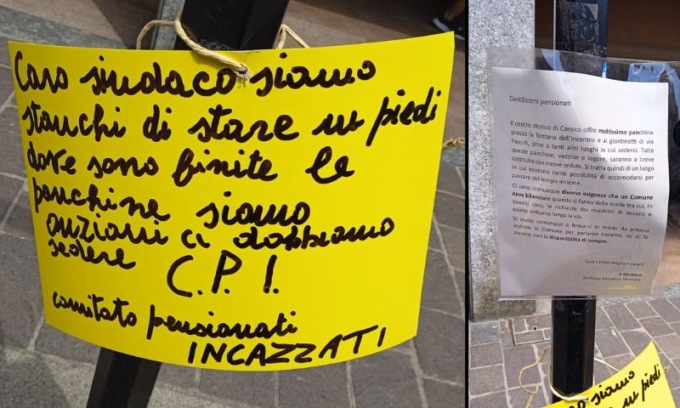 Caro sindaco siamo
stanchi di stare in piedi
dove sono finite le
panchine siamo
anziani ci dobbiamo
sedere
C.P.I.
comitato pensionati
INCAZZATI
Gentilissimi pensionati
Il centro storico di Corsico offre moltissime panchine
presso la fontana dell'incontro e ai giardinetti di via
Pascoli, oltre a tanti altri luoghi in cui sedersi. Tutte
queste panchine, vecchie e logore, saranno a breve
sostituite con nuove sedute. Si tratta quindi di un luogo
in cui esistono tante possibilità di accomodarsi per
passare del tempo insieme.
Ci sono comunque diverse esigenze che un Comune
deve bilanciare quando si fanno delle scelte tra cui, in
questo caso, le richieste dei residenti di decoro e
quiete notturna lungo la via.
Vi invito comunque a firmarvi in modo da potervi
invitare in Comune per parlarne insieme, se vi fa
piacere, con la disponibilità di sempre.
Con i miei migliori saluti
Il Sindaco
siamo
in piedi